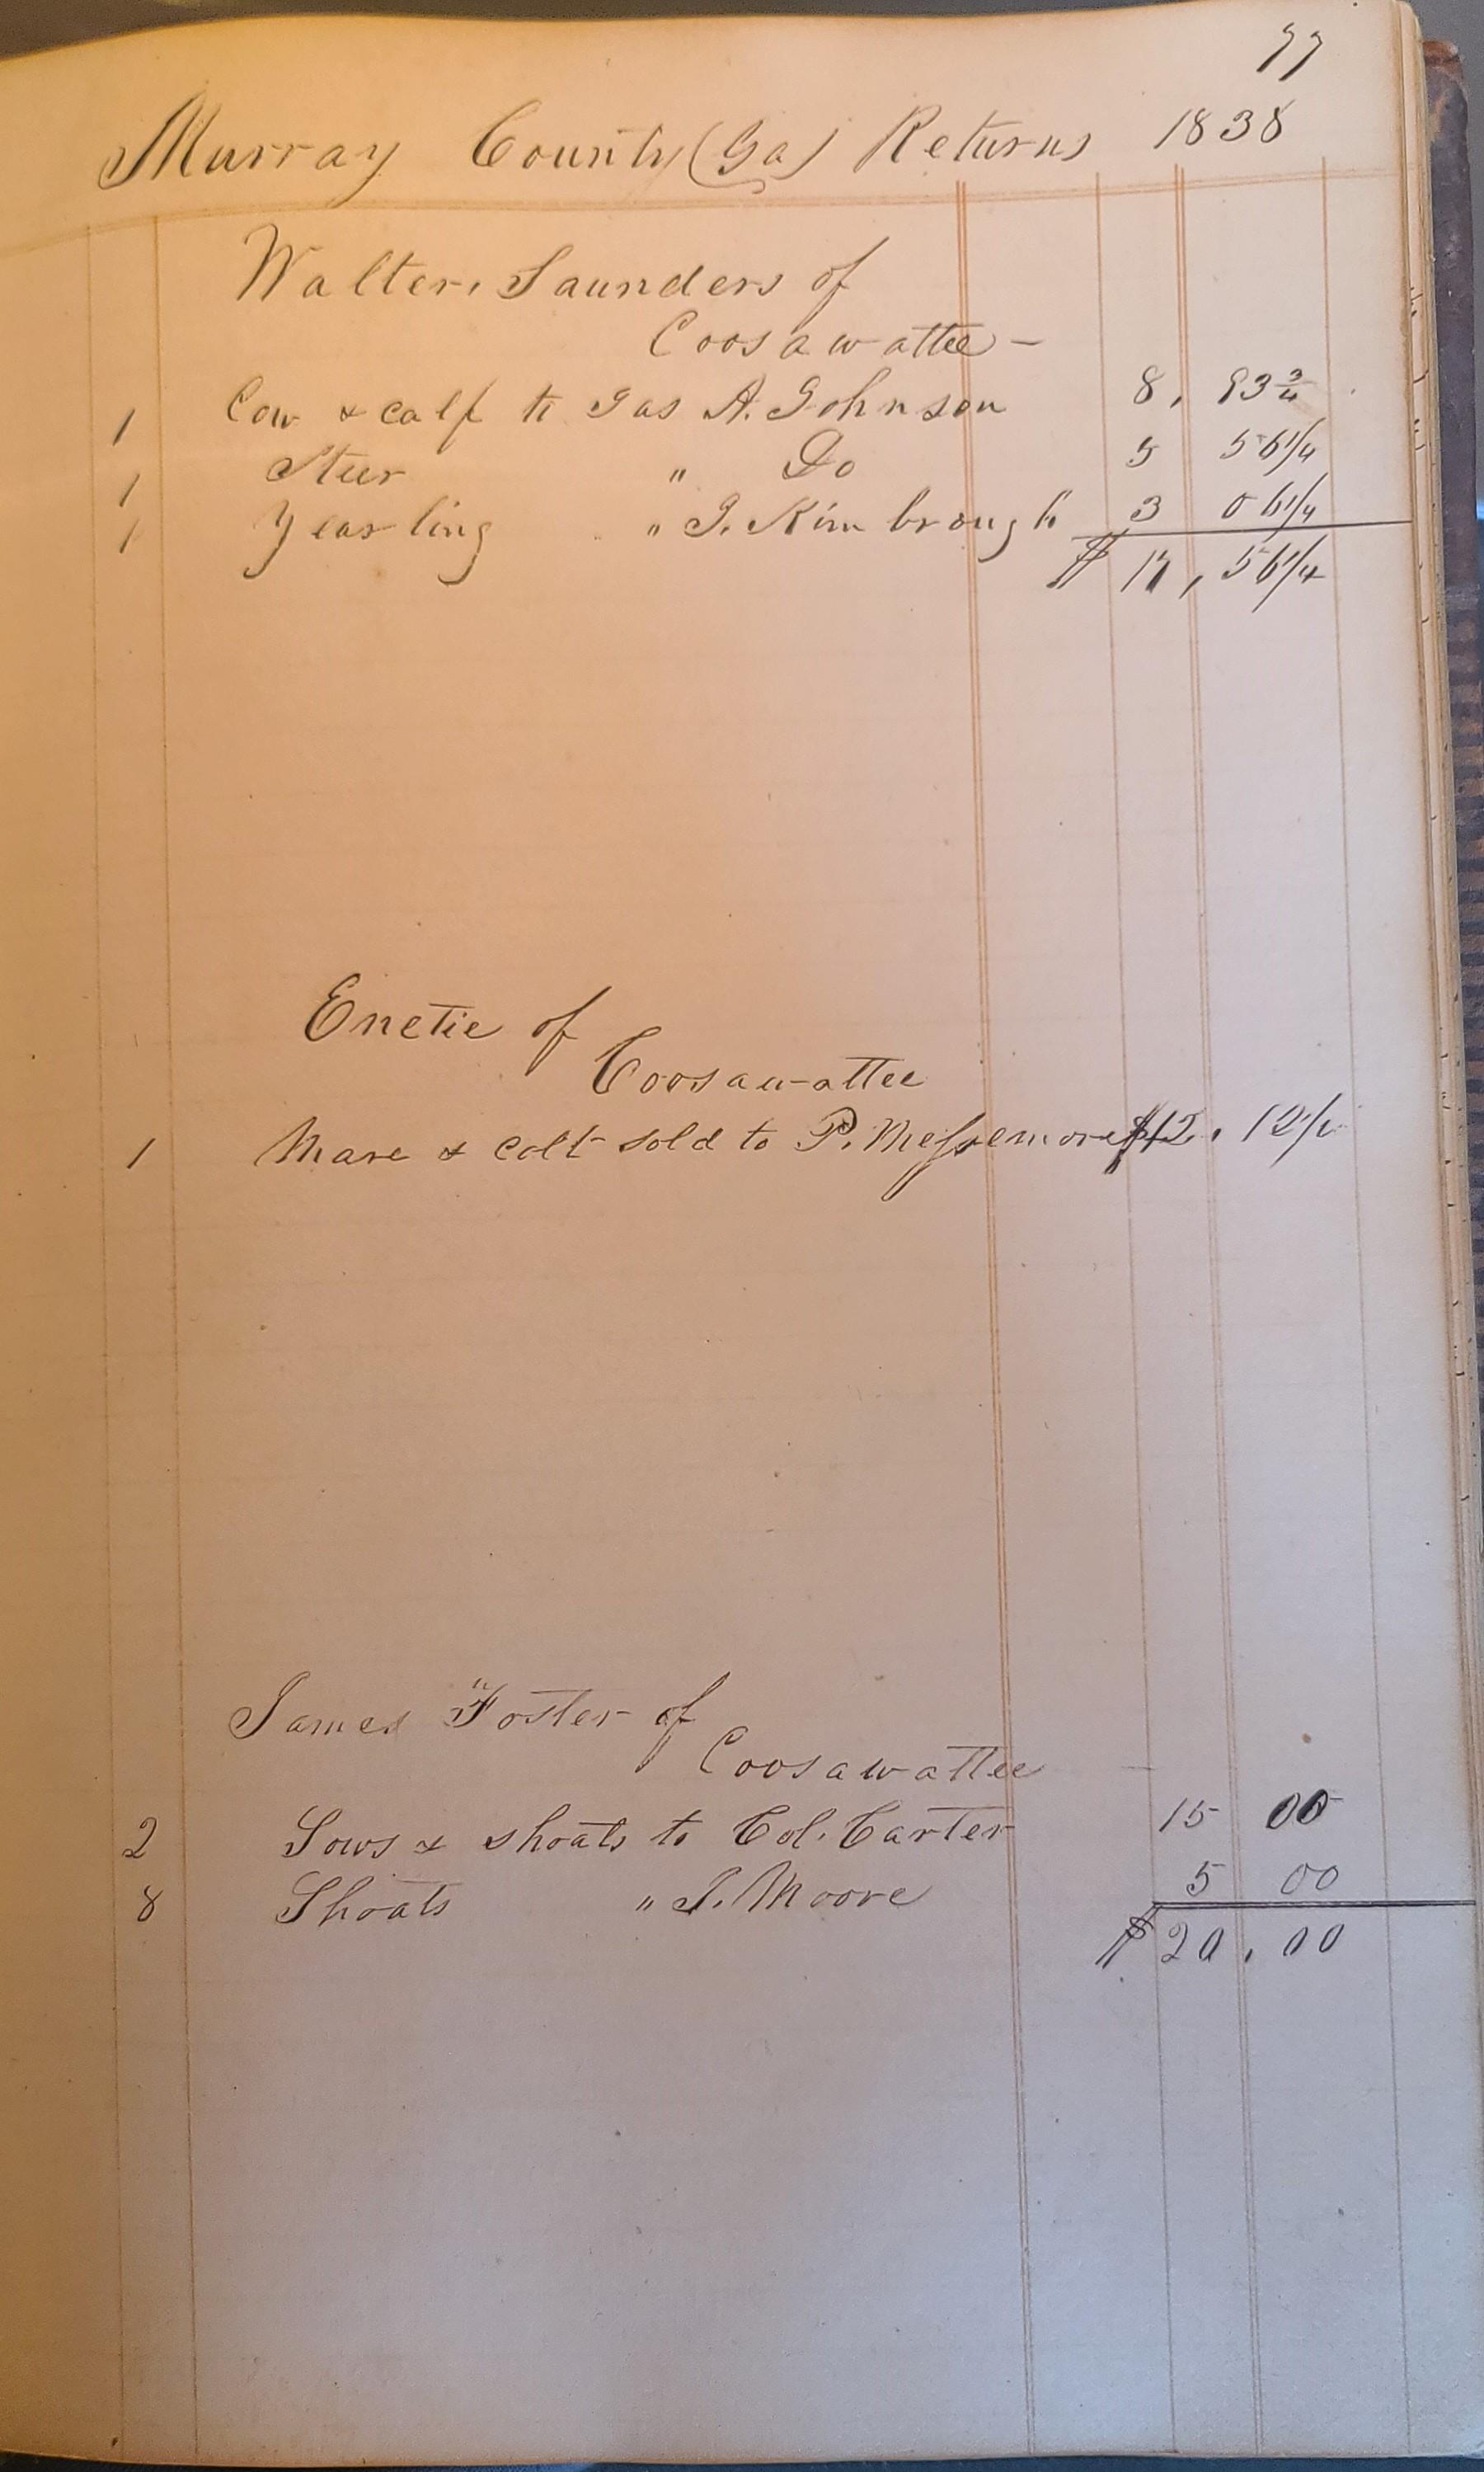 77
Murray County (Ga) Returns 1838
Walter Saunders of
Coosawattee -
1 Cow & calf to Jas A. Johnson 8, 93 3/4
1 Steer " Do 5 56 1/4
1 Yearling " J. Kimbrough 3 06 1/4
$ 17, 56 1/4
Enetie of
Coosawattee
1 Mare & colt sold to P. Messemore $12. 12 1/2
James Foster of
Coosawattee
2 Sows & shoats to Col. Carter 15 00
8 Shoats " J. Moore 5 00
$ 20. 00